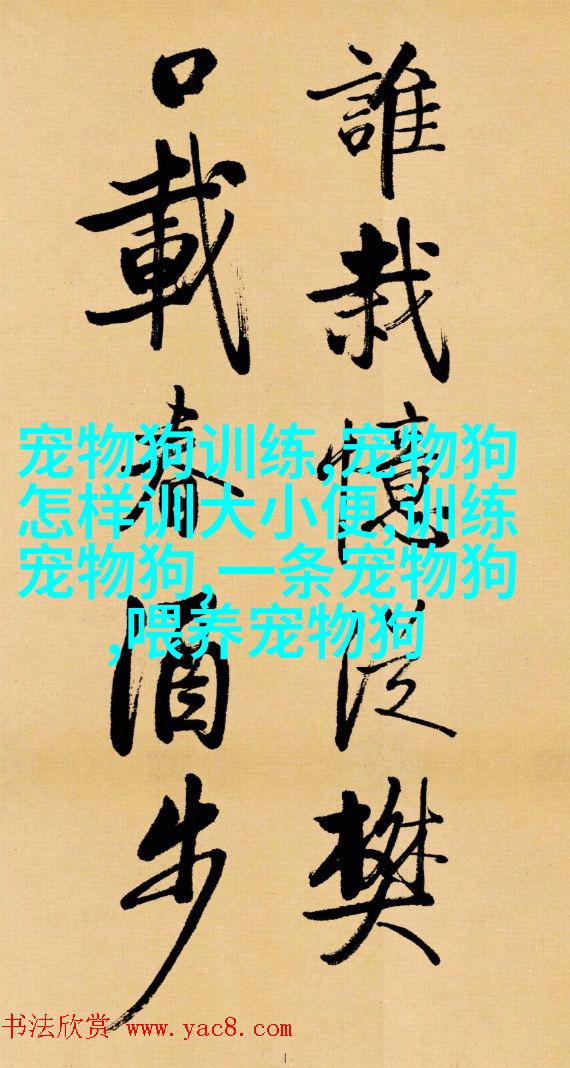 誰栽憶泛樊
口載春酒步
宠物狗训练,宠物狗
怎样训大小便,训练
宠物狗,一条宠物狗
,喂养宠物狗
书法欣赏 www.yac8.com